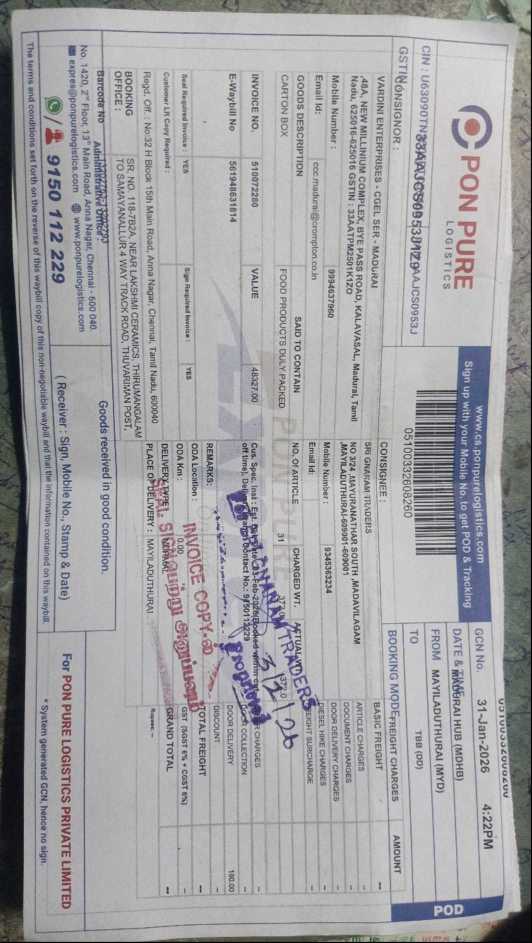 PON PURE
LOGISTICS
www.cs.ponpurelogistics.com
Sign up with your Mobile No. to get POD & Tracking
GCN No.
31-Jan-2026 4:22PM
DATE & TIME
MADURAI HUB (MDHB)
FROM MAYILADUTHURAI (MYD)
TO TBB (00)
POD
GSTIN
05100332608260
CONSIGNOR :
VARDINI ENTERPRISES - CGEL SER - MADURAI
,48A, NEW MILLINIUM COMPLEX, BYE PASS ROAD, KALAVASAL, Madurai, Tamil
Nadu, 625016-625016 GSTIN : 33AATPM2501K1ZO
Mobile Number : 9994637960
Email Id: ccc.madurai@crompton.co.in
CONSIGNEE :
SRI GNANAM TRADERS
NO 3/24 ,MAYURANATHAR SOUTH ,MADAVILAGAM
,MAYILADUTHURAI-609001-609001
Mobile Number : 9345363234
Email Id:
BOOKING MODE
FREIGHT CHARGES AMOUNT
BASIC FREIGHT --
ARTICLE CHARGES
DOCUMENT CHARGES
DOOR DELIVERY CHARGES
DIESEL HIKE CHARGES
FREIGHT SURCHARGE
CHARGES
DOOR COLLECTION
DOOR DELIVERY 180.00
DISCOUNT
TOTAL FREIGHT --
GST (SGST 6% + CGST 6%) --
GRAND TOTAL --
GOODS DESCRIPTION SAID TO CONTAIN NO. OF ARTICLE CHARGED WT. ACTUAL WT.
CARTON BOX FOOD PRODUCTS DULY PACKED 31
INVOICE NO. 510072280 VALUE 48327.00
E-Waybill No 561948631814
Seal Required Invoice : YES Sign Required Invoice : YES
Customer LR Copy Required :
REMARKS:
ODA Location :
ODA Km : 0.00
DELIVERY TYPE :
PLACE OF DELIVERY : MAYILADUTHURAI
INVOICE COPY-
TRADERS
3/2/26
Regd. Off : No:32 H Block 15th Main Road, Anna Nagar, Chennai, Tamil Nadu, 600040
BOOKING
OFFICE :
SR. NO. 118-7B2A, NEAR LAKSHMI CERAMICS, THIRUMANGALAM
TO SAMAYANALLUR 4 WAY TRACK ROAD, THUVARIMAN POST,
Barcode No
Administrative Office :
No. 1420, 2nd Floor, 13th Main Road, Anna Nagar, Chennai - 600 040.
expres@ponpurelogistics.com www.ponpurelogistics.com
9150 112 229
Goods received in good condition.
( Receiver : Sign, Mobile No., Stamp & Date)
For PON PURE LOGISTICS PRIVATE LIMITED
* System generated GCN, hence no sign.
The terms and conditions set forth on the reverse of this waybill copy of this non-negotiable waybill and that the information contained on this waybill.